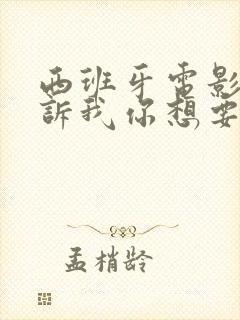 西班牙電影
訴我你想要
孟梢龄